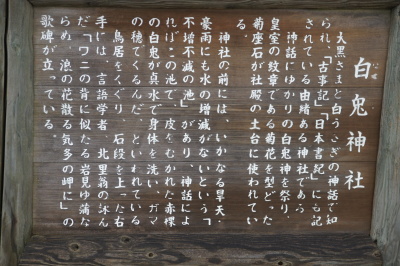 白兎神社
大黒さまと白うさぎの神話で知
られ、「古事記」「日本書紀」にも記
されている由緒ある神社である。
神話にゆかりの白兎神を祭り、
皇室の紋章である菊花を型どった
菊座石が社殿の土台に使われてい
る。
神社の前には、いかなる旱天・
豪雨にも水の増減がないという「
不増不減の池」があり、神話によ
ればこの池で、皮をむかれた赤裸
の白兎が真水で身体を洗い、ガマ
の穂でくるんだ、といわれている
鳥居をくぐり、石段を上った右
手には、言語学者 北里翁の詠ん
だ「ワニの背に似たる岩見ゆ蒲な
らめ、浪の花散る気多の岬に」の
歌碑が立っている。